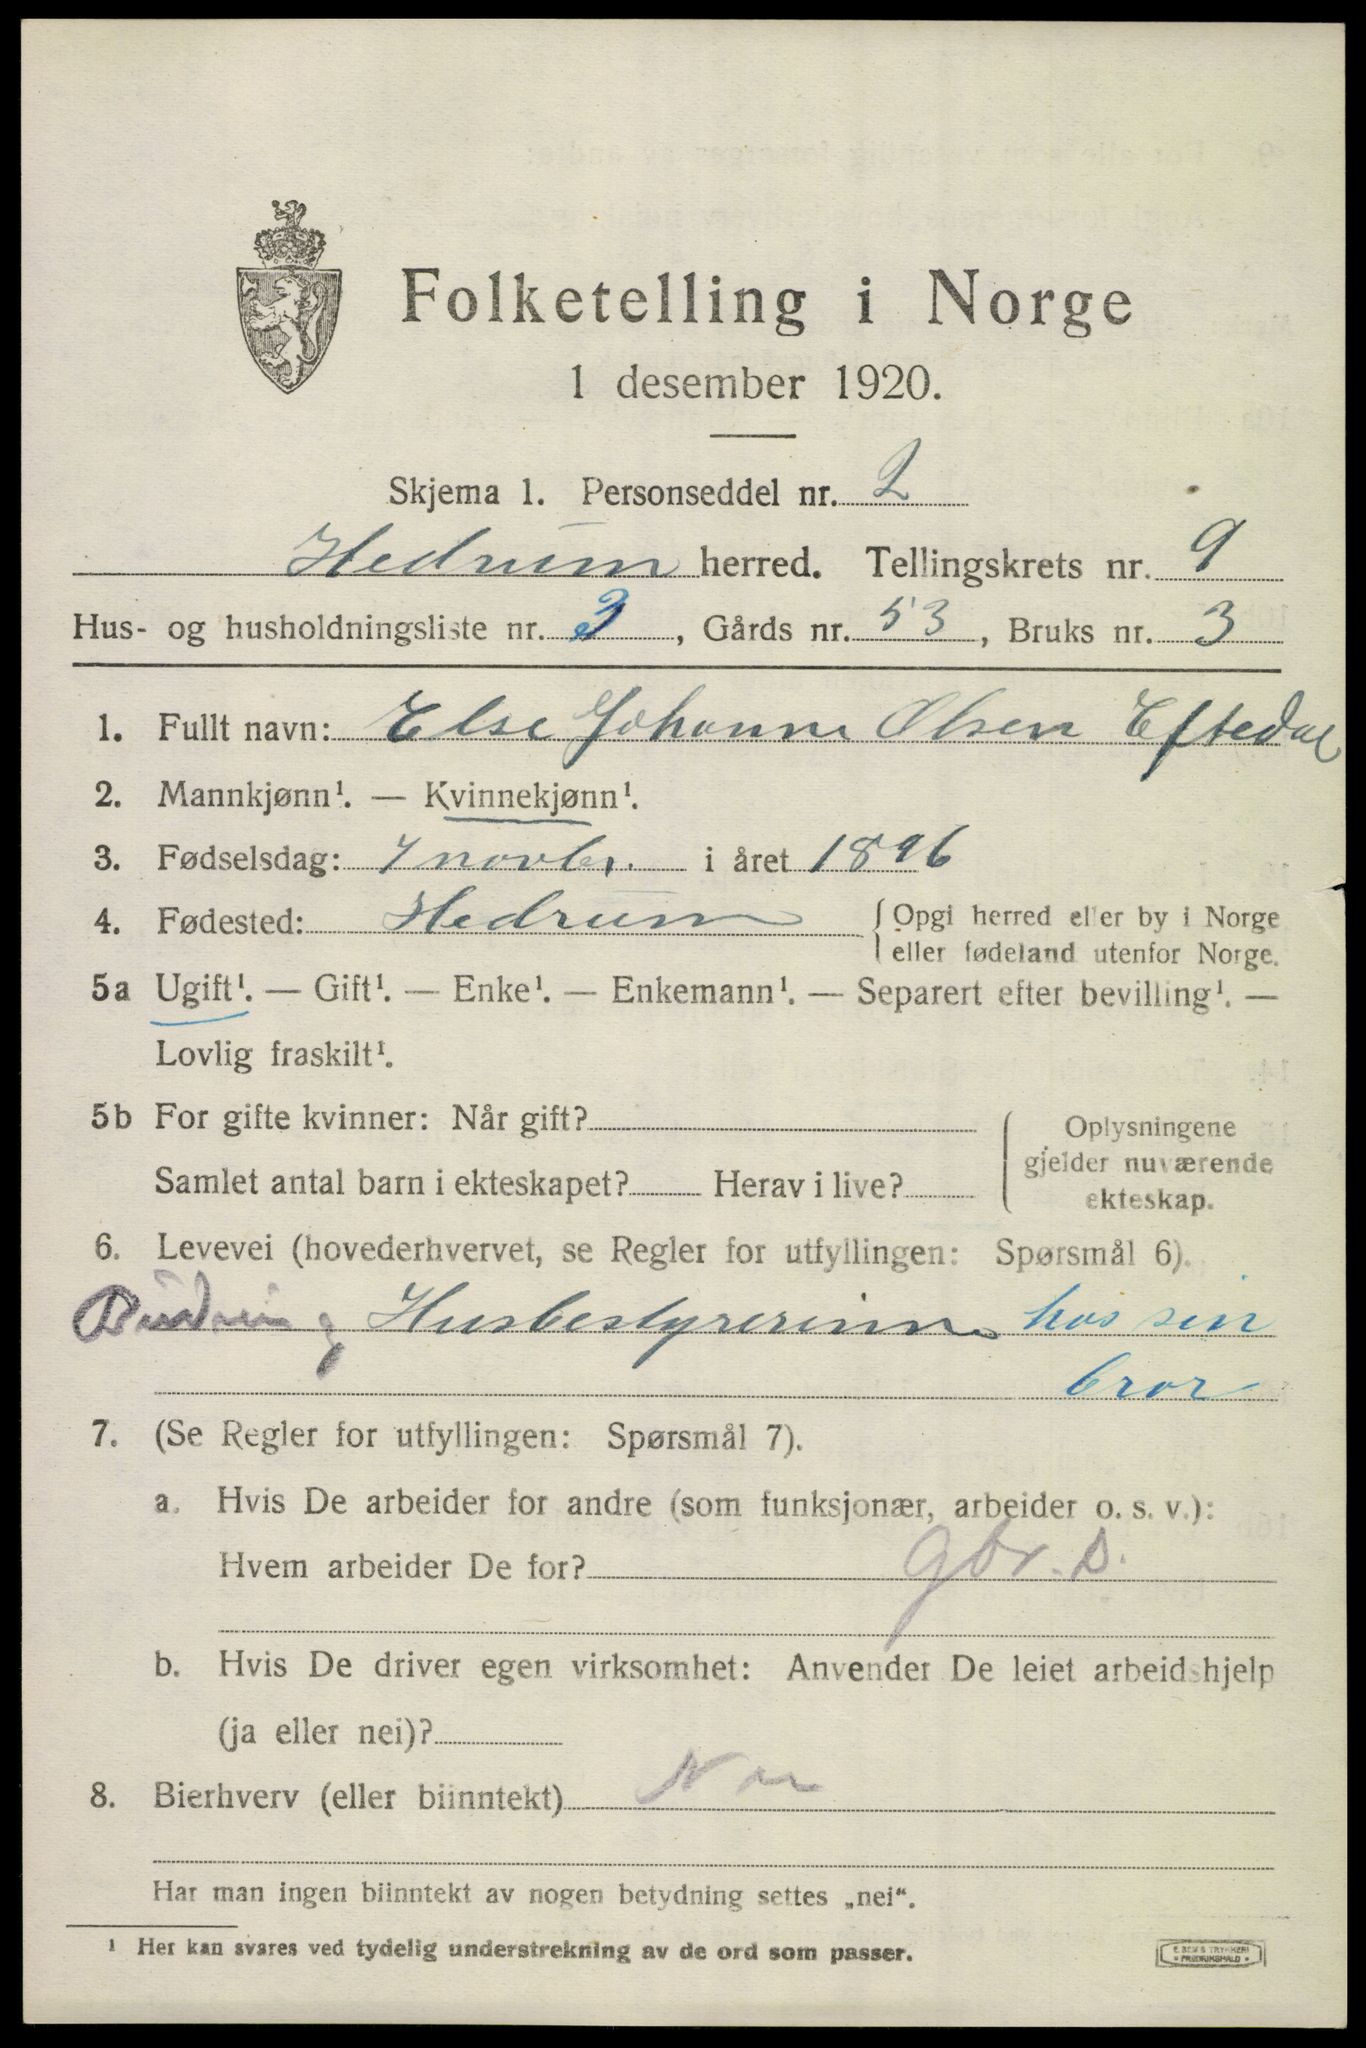 Folketelling i Norge
1 desember 1920.
Skjema 1. Personseddel nr. 2
Hedrum herred. Tellingskrets nr. 9
Hus- og husholdningsliste nr. 3, Gårds nr. 53, Bruks nr. 3
1. Fullt navn: Else Johanne Olsen Eftedal
2. Mannkjønn¹. — Kvinnekjønn¹.
3. Fødselsdag: 7 novbr. i året 1896
4. Fødested: Hedrum { Opgi herred eller by i Norge
eller fødeland utenfor Norge.
5a Ugift¹. — Gift¹. — Enke¹. — Enkemann¹. — Separert efter bevilling¹. —
Lovlig fraskilt¹.
5b For gifte kvinner: Når gift?
Samlet antal barn i ekteskapet? Herav i live?
{ Oplysningene
gjelder nuværende
ekteskap.
6. Levevei (hovederhvervet, se Regler for utfyllingen: Spørsmål 6).
Husbestyrerinne hos sin
bror
7. (Se Regler for utfyllingen: Spørsmål 7).
a. Hvis De arbeider for andre (som funksjonær, arbeider o. s. v.):
Hvem arbeider De for? Gbr. D.
b. Hvis De driver egen virksomhet: Anvender De leiet arbeidshjelp
(ja eller nei)?
8. Bierhverv (eller biinntekt)
Har man ingen biinntekt av nogen betydning settes „nei“.
¹ Her kan svares ved tydelig understrekning av de ord som passer.